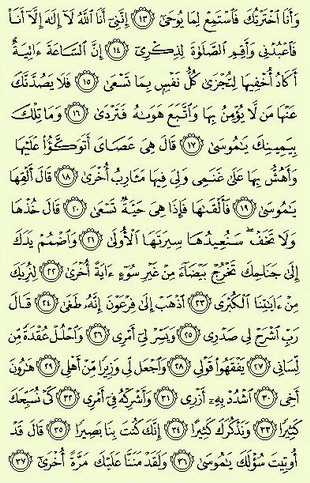 وَأَنَا ٱخْتَرْتُكَ فَٱسْتَمِعْ لِمَا يُوحَىٰٓ ١٣ إِنَّنِىٓ أَنَا ٱللَّهُ لَآ إِلَٰهَ إِلَّآ أَنَا۠
فَٱعْبُدْنِى وَأَقِمِ ٱلصَّلَوٰةَ لِذِكْرِىٓ ١٤ إِنَّ ٱلسَّاعَةَ ءَاتِيَةٌ
أَكَادُ أُخْفِيهَا لِتُجْزَىٰ كُلُّ نَفْسٍۭ بِمَا تَسْعَىٰ ١٥ فَلَا يَصُدَّنَّكَ
عَنْهَا مَن لَّا يُؤْمِنُ بِهَا وَٱتَّبَعَ هَوَىٰهُ فَتَرْدَىٰ ١٦ وَمَا تِلْكَ
بِيَمِينِكَ يَٰمُوسَىٰ ١٧ قَالَ هِىَ عَصَاىَ أَتَوَكَّؤُا۟ عَلَيْهَا
وَأَهُشُّ بِهَا عَلَىٰ غَنَمِى وَلِىَ فِيهَا مَـَٔارِبُ أُخْرَىٰ ١٨ قَالَ أَلْقِهَا
يَٰمُوسَىٰ ١٩ فَأَلْقَىٰهَا فَإِذَا هِىَ حَيَّةٌ تَسْعَىٰ ٢٠ قَالَ خُذْهَا
وَلَا تَخَفْ ۖ سَنُعِيدُهَا سِيرَتَهَا ٱلْأُولَىٰ ٢١ وَٱضْمُمْ يَدَكَ
إِلَىٰ جَنَاحِكَ تَخْرُجْ بَيْضَآءَ مِنْ غَيْرِ سُوٓءٍ ءَايَةً أُخْرَىٰ ٢٢ لِنُرِيَكَ
مِنْ ءَايَٰتِنَا ٱلْكُبْرَى ٢٣ ٱذْهَبْ إِلَىٰ فِرْعَوْنَ إِنَّهُۥ طَغَىٰ ٢٤ قَالَ
رَبِّ ٱشْرَحْ لِى صَدْرِى ٢٥ وَيَسِّرْ لِىٓ أَمْرِى ٢٦ وَٱحْلُلْ عُقْدَةً مِّن
لِّسَانِى ٢٧ يَفْقَهُوا۟ قَوْلِى ٢٨ وَٱجْعَل لِّى وَزِيرًا مِّنْ أَهْلِى ٢٩ هَٰرُونَ
أَخِى ٣٠ ٱشْدُدْ بِهِۦٓ أَزْرِى ٣١ وَأَشْرِكْهُ فِىٓ أَمْرِى ٣٢ كَىْ نُسَبِّحَكَ
كَثِيرًا ٣٣ وَنَذْكُرَكَ كَثِيرًا ٣٤ إِنَّكَ كُنتَ بِنَا بَصِيرًا ٣٥ قَالَ قَدْ
أُوتِيتَ سُؤْلَكَ يَٰمُوسَىٰ ٣٦ وَلَقَدْ مَنَنَّا عَلَيْكَ مَرَّةً أُخْرَىٰٓ ٣٧